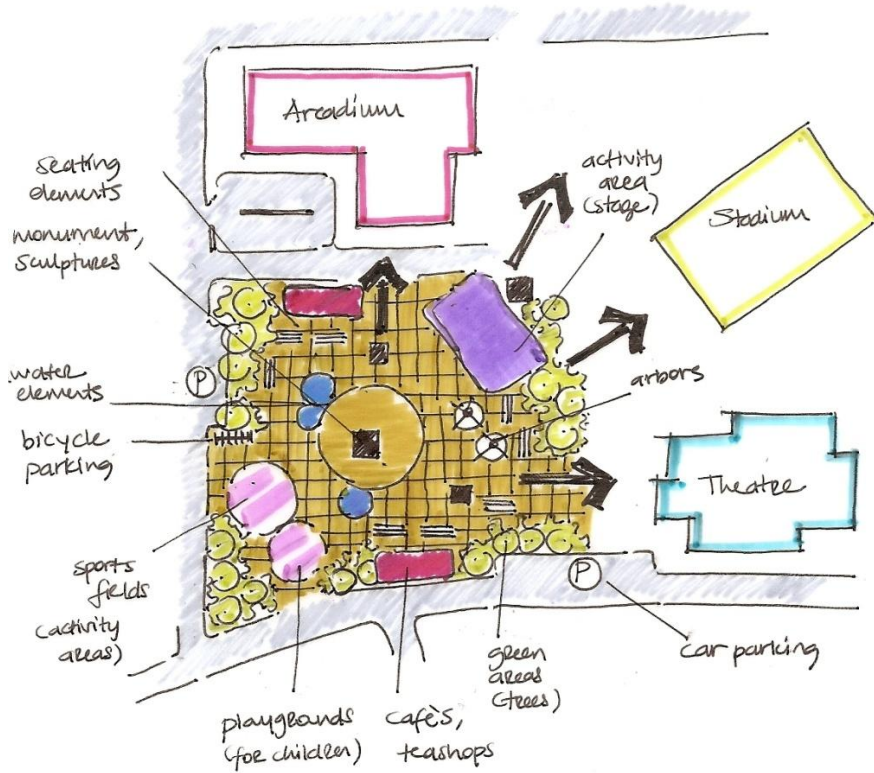 Arcadium
seating
elements
monument,
sculptures
activity
area
(stage)
Stadium
P
water
elements
arbors
bicycle
parking
Theatre
sports
fields
(activity
areas)
P
green
areas
(trees)
car parking
playgrounds
(for children)
cafè's,
teashops